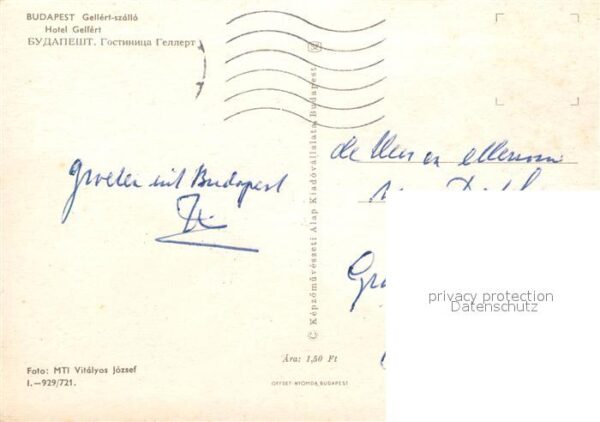 BUDAPEST Gellért-szálló
Hotel Gellért
БУДАПЕШТ. Гостиница Геллерт
groeten uit Budapest
de Heer en
© Képzőművészeti Alap Kiadóvállalata Budapest
privacy protection
Datenschutz
Ára: 1,50 Ft
Foto: MTI Vitályos József
I.—929/721.
OFFSET-NYOMDA, BUDAPEST